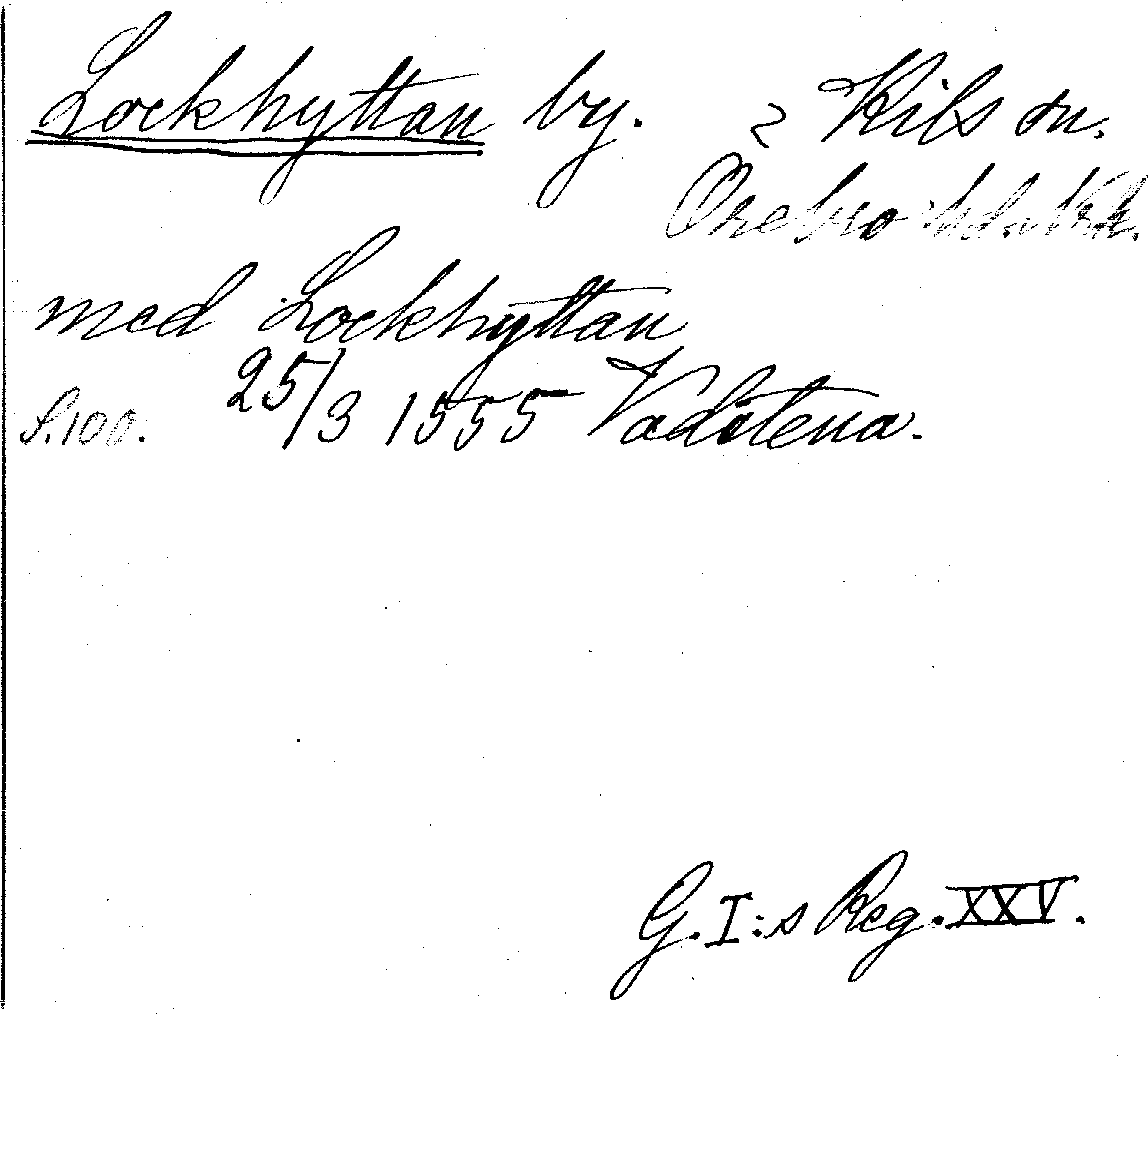 Lockhyttan by. i Kils sn.
Örebro hd. Nke.
med Lockhyttan
S. 100. 25/3 1555 Vadstena.
G. I:s Reg. XXV.